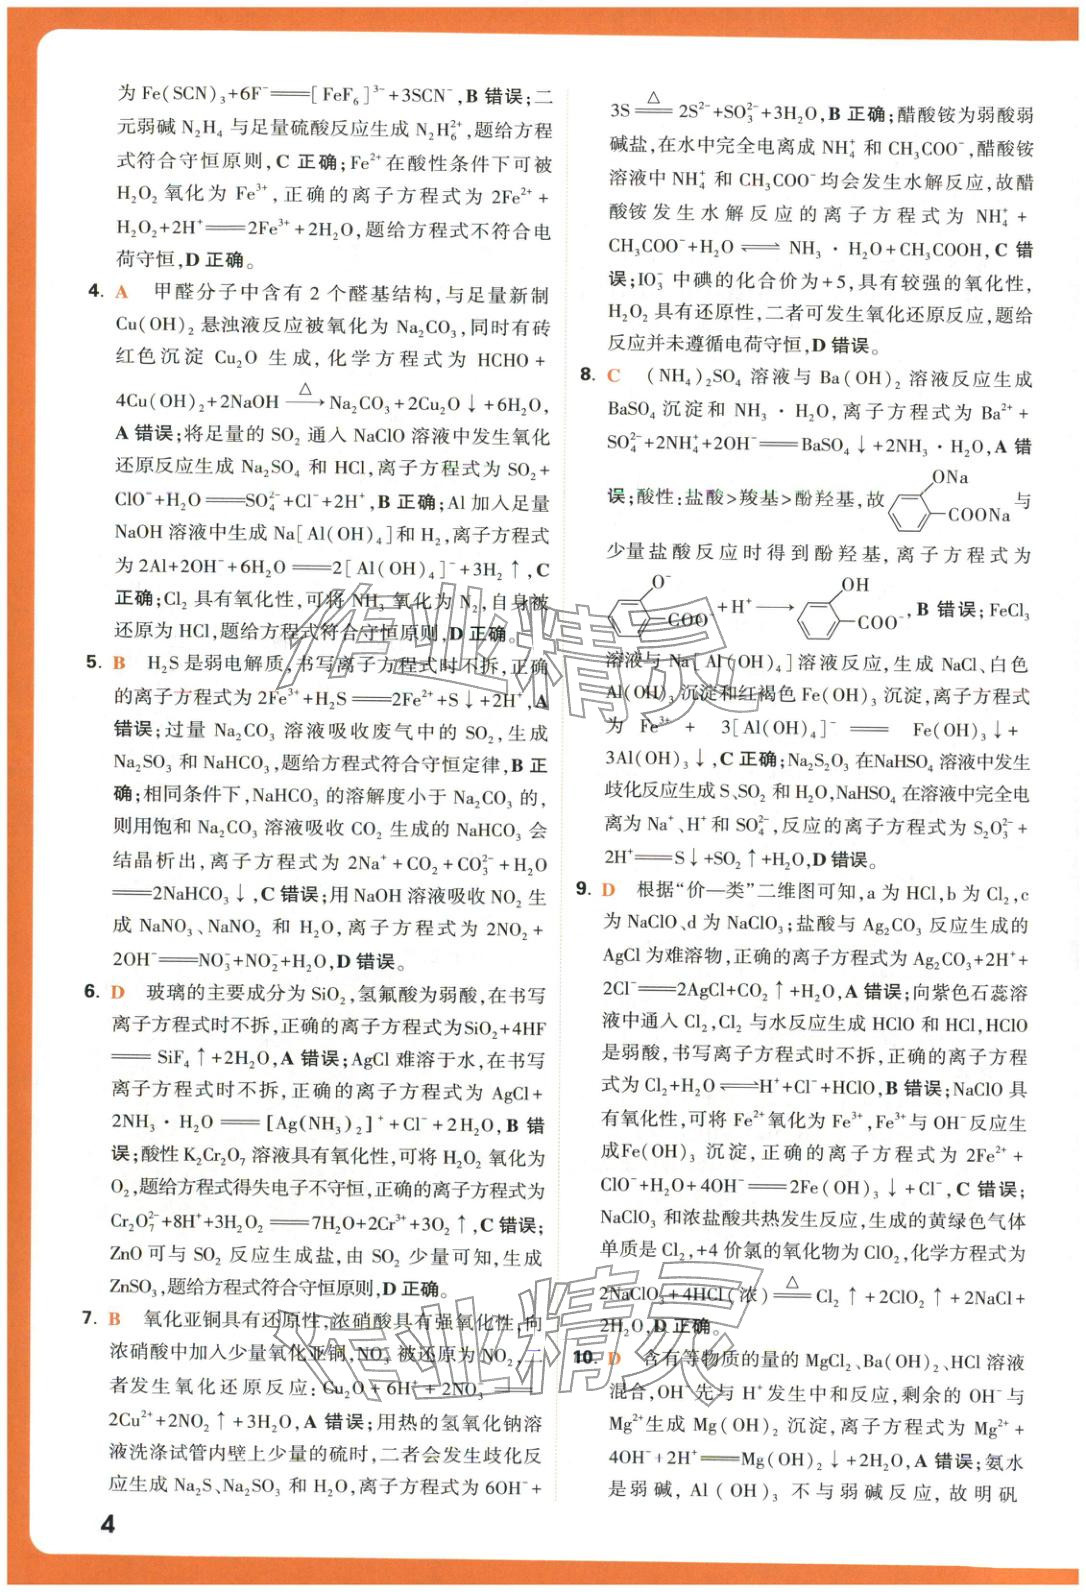 为 Fe(SCN)₃+6F⁻══[FeF₆]³⁻+3SCN⁻,B 错误;二
元弱碱 N₂H₄ 与足量硫酸反应生成 N₂H₆²⁺,题给方程
式符合守恒原则,C 正确;Fe²⁺在酸性条件下可被
H₂O₂ 氧化为 Fe³⁺,正确的离子方程式为 2Fe²⁺+
H₂O₂+2H⁺══2Fe³⁺+2H₂O,题给方程式不符合电
荷守恒,D 正确。
4. A 甲醛分子中含有 2 个醛基结构,与足量新制
Cu(OH)₂ 悬浊液反应被氧化为 Na₂CO₃,同时有砖
红色沉淀 Cu₂O 生成,化学方程式为 HCHO+
4Cu(OH)₂+2NaOH —△→ Na₂CO₃+2Cu₂O↓+6H₂O,
A 错误;将足量的 SO₂ 通入 NaClO 溶液中发生氧化
还原反应生成 Na₂SO₄ 和 HCl,离子方程式为 SO₂+
ClO⁻+H₂O══SO₄²⁻+Cl⁻+2H⁺,B 正确;Al 加入足量
NaOH 溶液中生成 Na[Al(OH)₄]和 H₂,离子方程式
为 2Al+2OH⁻+6H₂O══2[Al(OH)₄]⁻+3H₂↑,C
正确;Cl₂ 具有氧化性,可将 NH₃ 氧化为 N₂,自身被
还原为 HCl,题给方程式符合守恒原则,D 正确。
5. B H₂S 是弱电解质,书写离子方程式时不拆,正确
的离子方程式为 2Fe³⁺+H₂S══2Fe²⁺+S↓+2H⁺,A
错误;过量 Na₂CO₃ 溶液吸收废气中的 SO₂,生成
Na₂SO₃ 和 NaHCO₃,题给方程式符合守恒定律,B 正
确;相同条件下,NaHCO₃ 的溶解度小于 Na₂CO₃ 的,
则用饱和 Na₂CO₃ 溶液吸收 CO₂ 生成的 NaHCO₃ 会
结晶析出,离子方程式为 2Na⁺+CO₂+CO₃²⁻+H₂O
══2NaHCO₃↓,C 错误;用 NaOH 溶液吸收 NO₂ 生
成 NaNO₃、NaNO₂ 和 H₂O,离子方程式为 2NO₂+
2OH⁻══NO₃⁻+NO₂⁻+H₂O,D 错误。
6. D 玻璃的主要成分为 SiO₂,氢氟酸为弱酸,在书写
离子方程式时不拆,正确的离子方程式为SiO₂+4HF
══SiF₄↑+2H₂O,A 错误;AgCl 难溶于水,在书写
离子方程式时不拆,正确的离子方程式为 AgCl+
2NH₃·H₂O══[Ag(NH₃)₂]⁺+Cl⁻+2H₂O,B 错
误;酸性 K₂Cr₂O₇ 溶液具有氧化性,可将 H₂O₂ 氧化为
O₂,题给方程式得失电子不守恒,正确的离子方程式为
Cr₂O₇²⁻+8H⁺+3H₂O₂══7H₂O+2Cr³⁺+3O₂↑,C 错误;
ZnO 可与 SO₂ 反应生成盐,由 SO₂ 少量可知,生成
ZnSO₃,题给方程式符合守恒原则,D 正确。
7. B 氧化亚铜具有还原性,浓硝酸具有强氧化性,向
浓硝酸中加入少量氧化亚铜,NO₃⁻ 被还原为 NO₂,二
者发生氧化还原反应:Cu₂O+6H⁺+2NO₃⁻══
2Cu²⁺+2NO₂↑+3H₂O,A 错误;用热的氢氧化钠溶
液洗涤试管内壁上少量的硫时,二者会发生歧化反
应生成 Na₂S、Na₂SO₃ 和 H₂O,离子方程式为 6OH⁻+
4
3S ═△═ 2S²⁻+SO₃²⁻+3H₂O,B 正确;醋酸铵为弱酸弱
碱盐,在水中完全电离成 NH₄⁺ 和 CH₃COO⁻,醋酸铵
溶液中 NH₄⁺ 和 CH₃COO⁻均会发生水解反应,故醋
酸铵发生水解反应的离子方程式为 NH₄⁺+
CH₃COO⁻+H₂O⇌NH₃·H₂O+CH₃COOH,C 错
误;IO₃⁻ 中碘的化合价为+5,具有较强的氧化性,
H₂O₂ 具有还原性,二者可发生氧化还原反应,题给
反应并未遵循电荷守恒,D 错误。
8. C (NH₄)₂SO₄ 溶液与 Ba(OH)₂ 溶液反应生成
BaSO₄ 沉淀和 NH₃·H₂O,离子方程式为 Ba²⁺+
SO₄²⁻+2NH₄⁺+2OH⁻══BaSO₄↓+2NH₃·H₂O,A 错
误;酸性:盐酸>羧基>酚羟基,故 ONa COONa 与
少量盐酸反应时得到酚羟基,离子方程式为
O⁻ COO⁻ +H⁺ ⟶ OH COO⁻ ,B 错误;FeCl₃
溶液与 Na[Al(OH)₄]溶液反应,生成 NaCl、白色
Al(OH)₃ 沉淀和红褐色 Fe(OH)₃ 沉淀,离子方程式
为 Fe³⁺ + 3[Al(OH)₄]⁻ ══ Fe(OH)₃↓+
3Al(OH)₃↓,C 正确;Na₂S₂O₃ 在NaHSO₄ 溶液中发生
歧化反应生成 S、SO₂ 和 H₂O,NaHSO₄ 在溶液中完全电
离为 Na⁺、H⁺ 和 SO₄²⁻,反应的离子方程式为 S₂O₃²⁻+
2H⁺══S↓+SO₂↑+H₂O,D 错误。
9. D 根据“价—类”二维图可知,a 为 HCl,b 为 Cl₂,c
为 NaClO、d 为 NaClO₃;盐酸与 Ag₂CO₃ 反应生成的
AgCl 为难溶物,正确的离子方程式为 Ag₂CO₃+2H⁺+
2Cl⁻══2AgCl+CO₂↑+H₂O,A 错误;向紫色石蕊溶
液中通入 Cl₂,Cl₂ 与水反应生成 HClO 和 HCl,HClO
是弱酸,书写离子方程式时不拆,正确的离子方程
式为 Cl₂+H₂O⇌H⁺+Cl⁻+HClO,B 错误;NaClO 具
有氧化性,可将 Fe²⁺氧化为 Fe³⁺,Fe³⁺与 OH⁻反应生
成Fe(OH)₃ 沉淀,正确的离子方程式为 2Fe²⁺+
ClO⁻+H₂O+4OH⁻══2Fe(OH)₃↓+Cl⁻,C 错误;
NaClO₃ 和浓盐酸共热发生反应,生成的黄绿色气体
单质是 Cl₂,+4 价氯的氧化物为 ClO₂,化学方程式为
2NaClO₃+4HCl(浓) ═△═ Cl₂↑+2ClO₂↑+2NaCl+
2H₂O,D 正确。
10. D 含有等物质的量的 MgCl₂、Ba(OH)₂、HCl 溶液
混合,OH⁻先与 H⁺发生中和反应,剩余的 OH⁻与
Mg²⁺生成 Mg(OH)₂ 沉淀,离子方程式为 Mg²⁺+
4OH⁻+2H⁺══Mg(OH)₂↓+2H₂O,A 错误;氨水
是弱碱,Al(OH)₃ 不与弱碱反应,故明矾
作业精灵
作业精灵